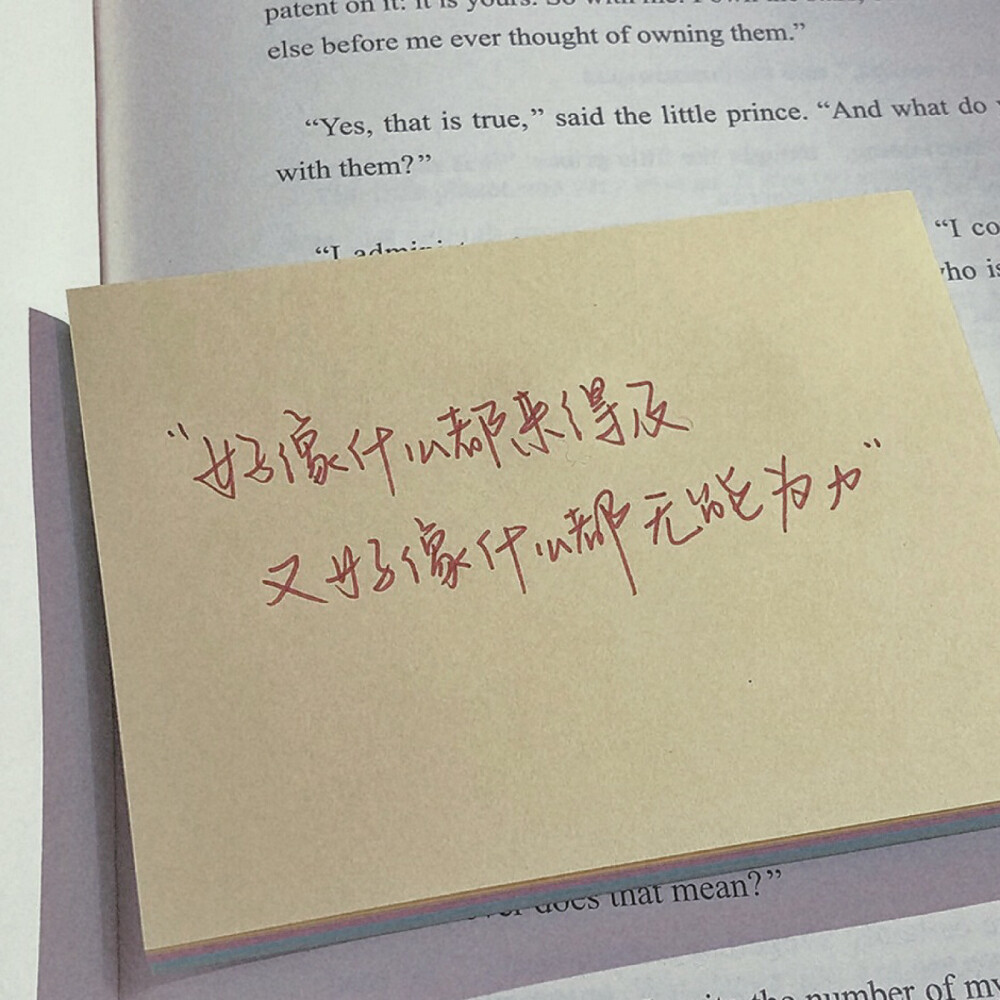 patent on it: it is yours. So with me: I own
else before me ever thought of owning them.”
“Yes, that is true,” said the little prince. “And what do
with them?”
“I
“I co
who is
“好像什么都来得及
又好像什么都无能为力”
does that mean?”
the number of my